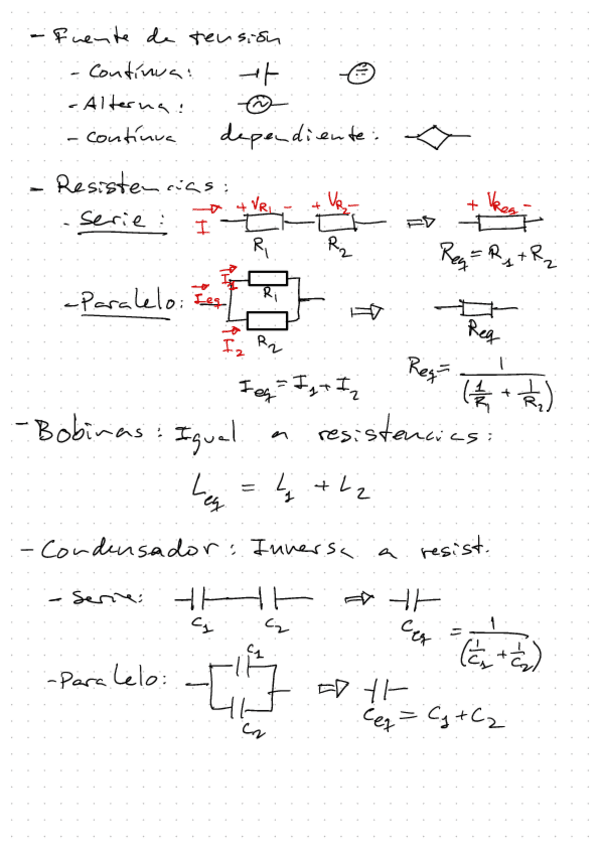 - Fuente de tensión
- Contínua:
- Alterna:
- Contínua dependiente:
- Resistencias:
+ VR1 - + VR2 - + VReq -
- Serie: I ⇒
R1 R2 Req = R1 + R2
I1
- Paralelo: Ieq R1 ⇒
I2 R2 Req
Ieq = I1 + I2 Req = 1 / (1/R1 + 1/R2)
- Bobinas: Igual a resistencias:
Leq = L1 + L2
- Condensador: Inversa a resist.
- Serie: ⇒
C1 C2 Ceq = 1 / (1/C1 + 1/C2)
C1
- Paralelo: ⇒
C2 Ceq = C1 + C2